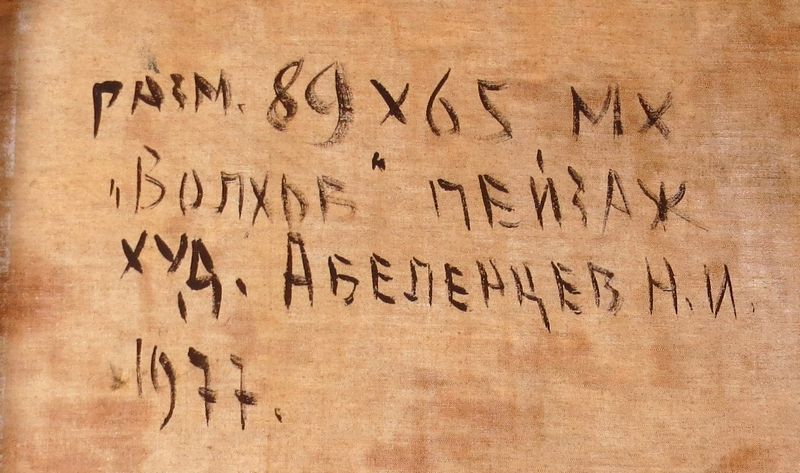 разм. 89х65 мх
„Волхов" пейзаж
худ. Абеленцев Н.И.
1977.